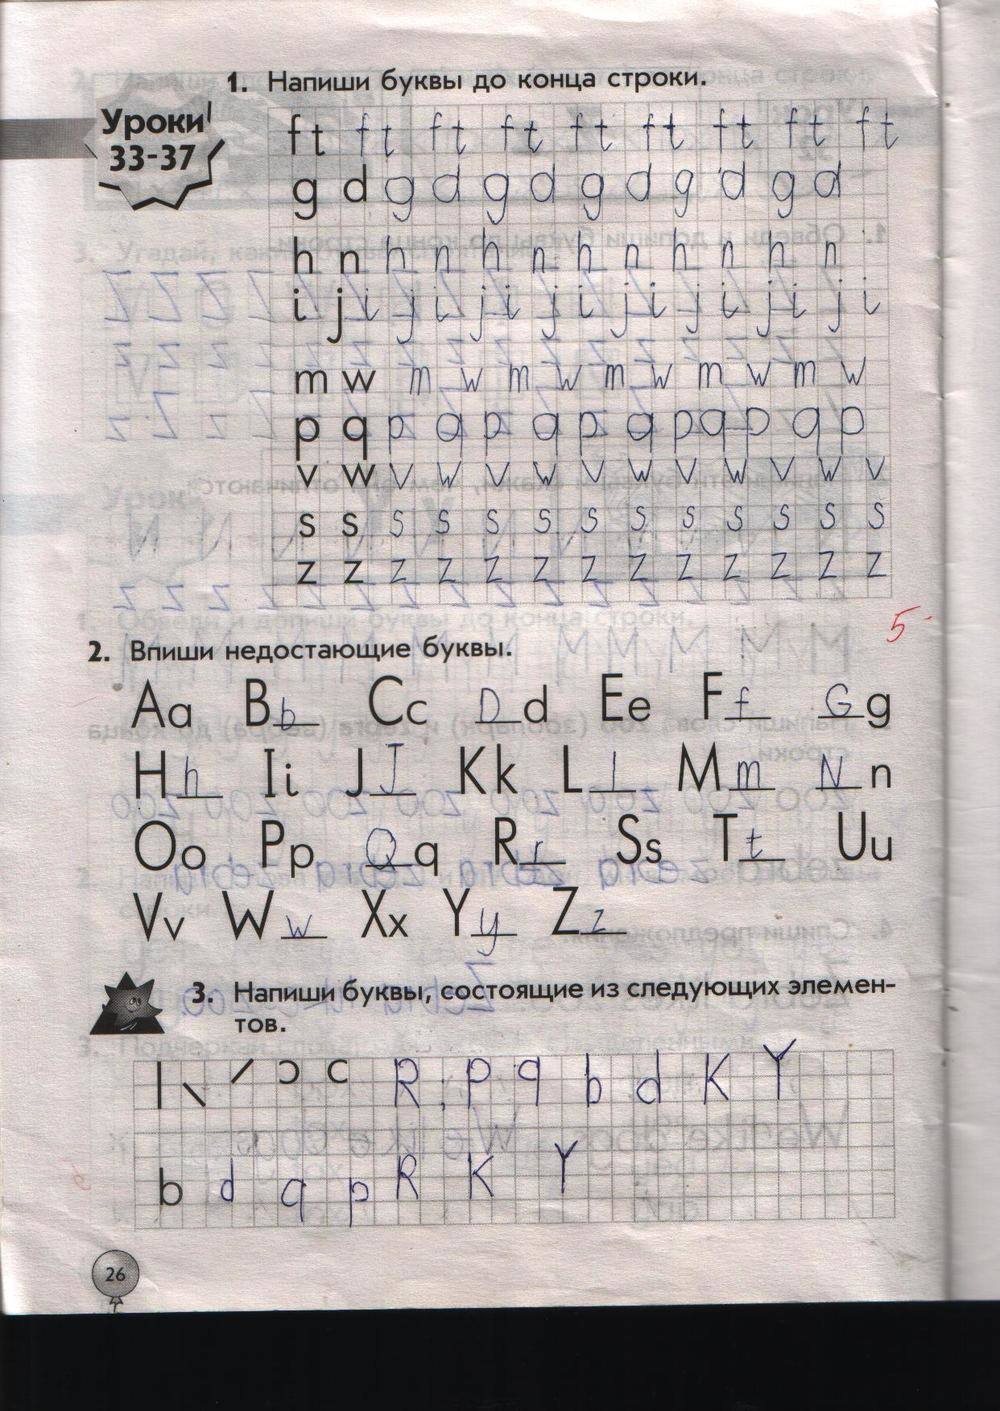 1. Напиши буквы до конца строки.
Уроки
33-37
f t f t f t f t f t f t f t f t f t
g d g d g d g d g d g d
h n h n h n h n h n h n
i j i j i j i j i j i j i
m w m w m w m w m w m w
p q p q p q p q p q p q p
v w v w v w v w v w v w v
s s s s s s s s s s s s s
z z z z z z z z z z z z z
5-
2. Впиши недостающие буквы.
Aa Bb Cc Dd Ee Ff Gg
Hh Ii JJ Kk Ll Mm Nn
Oo Pp Qq Rr Ss Tt Uu
Vv Ww Xx Yy Zz
3. Напиши буквы, состоящие из следующих элемен-
тов.
R, P q b d K Y
b d q p R K Y
26